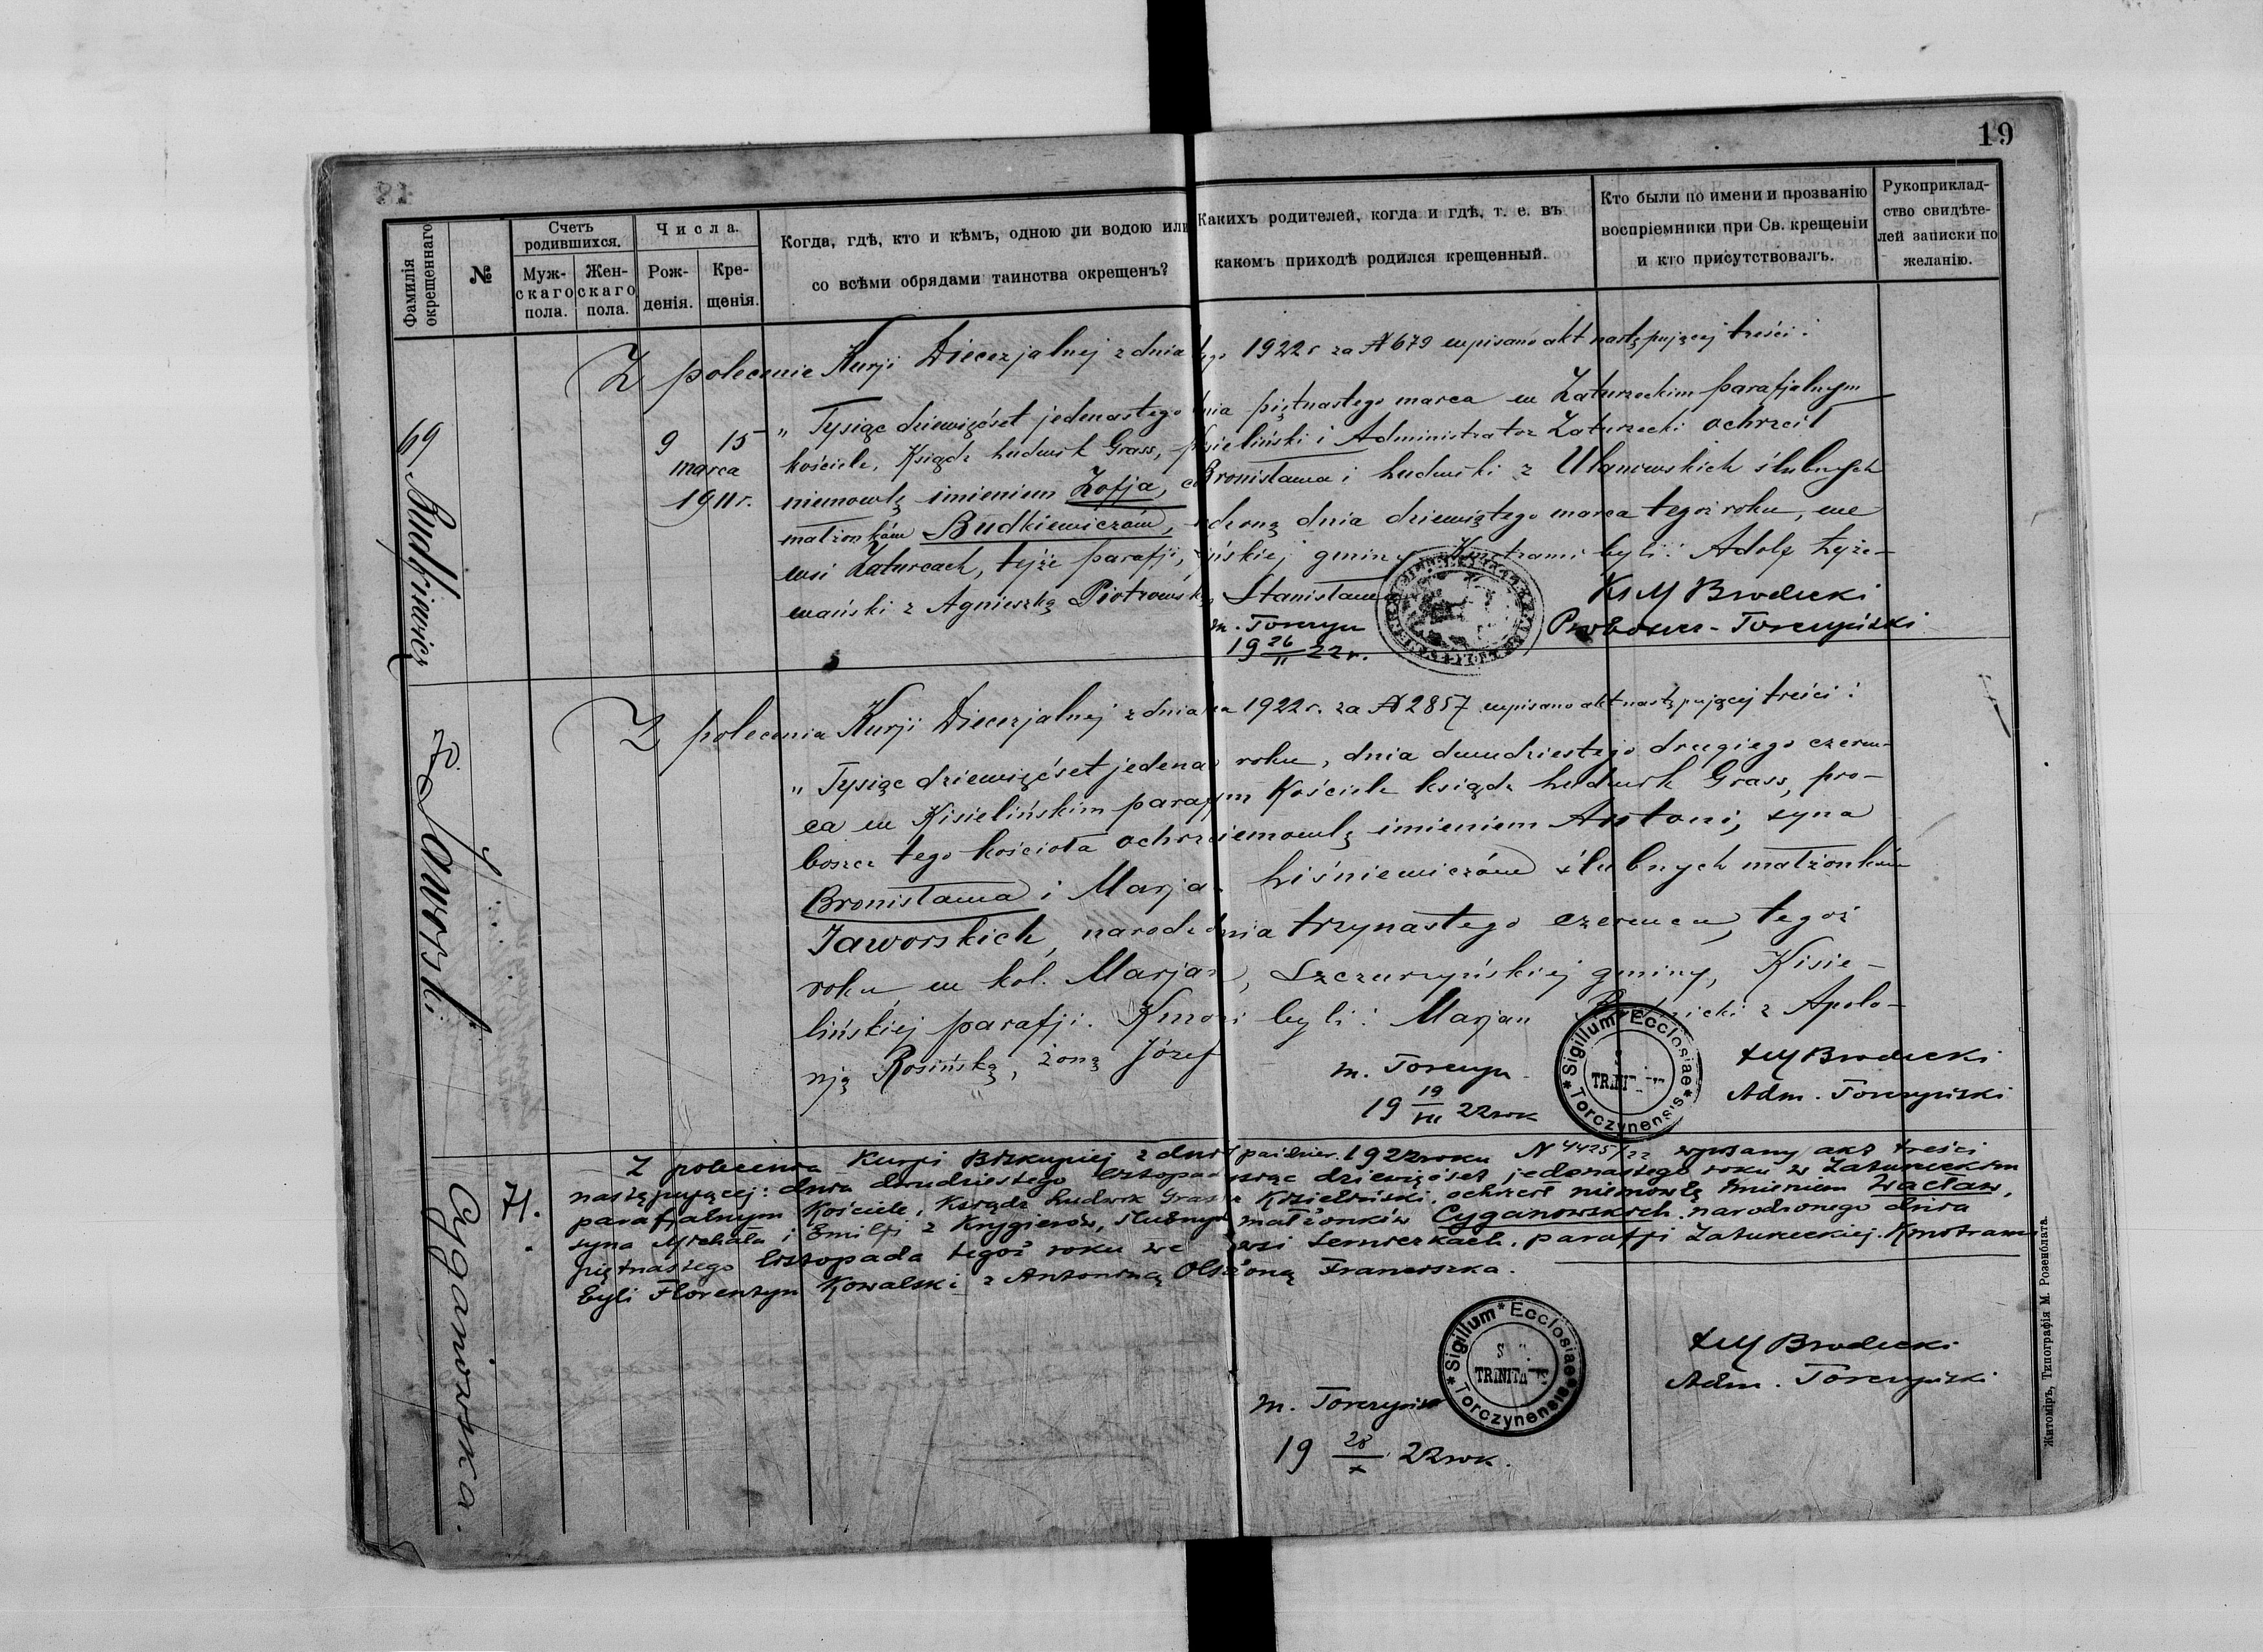 19
Фамилія окрещеннаго
№
Счетъ родившихся.
Муж-скаго пола.
Жен-скаго пола.
Числа.
Рож-денія.
Кре-щенія.
Когда, гдѣ, кто и кѣмъ, одною ли водою или
со всѣми обрядами таинства окрещенъ?
Какихъ родителей, когда и гдѣ, т. е. въ
какомъ приходѣ родился крещенный.
Кто были по имени и прозванію
воспріемники при Св. крещеніи
и кто присутствовалъ.
Рукоприклад-
ство свидѣте-
лей записки по
желанію.
69
Budkiewicz
Z polecenie Kurji Diecezjalnej z dnia 1922 r za № 679 wpisano akt następującej treści:
9 15
marca
1911 r.
"Tysiąc dziewięćset jedenastego dnia piętnastego marca w Zaturzeckim parafjalnym
kościele, Ksiądz Ludwik Grass, Kisieliński i Administrator Zaturzecki ochrzcił
niemowlę imieniem Zofja, Bronisława i Ludwiki z Ulanowskich ślubnych
małżonków Budkiewiczów, dnia dziewiątego marca tegoż roku, we
wsi Zaturcach, tejże parafji, gminy. Kmotrami byli: Adolf Łyże-
wański z Agnieszką Piotrowską Stanisława
m. Torczyn
19 26/II 22 r.
Ks M Brodecki
Proboszcz-Torczyński
Jaworski
Z polecenia Kurji Diecezjalnej z dnia 1922 r. za № 2857 wpisano akt następującej treści:
"Tysiąc dziewięćset jedena roku, dnia dwudziestego drugiego czerw-
ca w Kisielińskim paraf Kościele ksiądz Ludwik Grass, pro-
boszcz tego kościoła ochrz niemowlę imieniem Antoni, syna
Bronisława i Marja Liśniewiczów ślubnych małżonków
Jaworskich, narodz dnia trzynastego czerwca, tegoż
roku w kol. Marjan, Szczurzyńskiej gminy, Kisie-
lińskiej parafji. Kmo byli: Marjan z Apolo-
nją Rosińską, żoną Józef
m. Torczyn
19 19/VII 22 rok
*Sigillum*Ecclosiae*
TRINIT
Torczynensis
Ks M Brodecki
Adm. Torczyński
71.
Cyganowska.
Z polecenia Kurji Biskupiej z dnia paździer. 1922 roku N 4425/22 wpisany akt treści
następującej: dnia dwudziestego listopad dziewięćset jedenastego roku w Zaturzeckim
parafjalnym Kościele, Ksiądz Ludwik Grass Kisieliński, ochrzcił niemowlę imieniem Wacław,
syna Michała i Emilji z Krygierów, ślubnych małżonków Cyganowskich, narodzonego dnia
piętnastego listopada tegoż roku we wsi Semerkach, parafji Zaturzeckiej. Kmotrami
byli Florentyn Kowalski z Antoniną Ol żoną Franciszka.
m. Torczyn
19 28/X 22 rok.
*Sigillum*Ecclosiae*
S
TRINITATS
Torczynensis
Ks M Brodecki
Adm. Torczyński
Житоміръ, Типографія М. Розенблата.